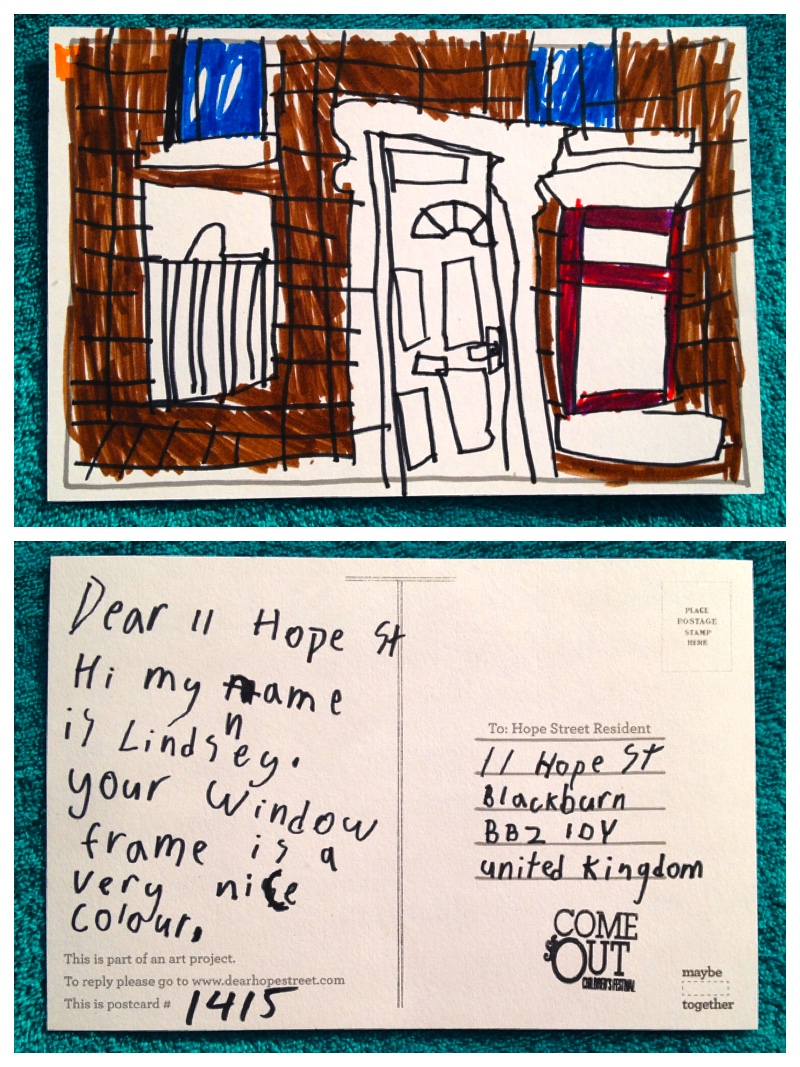 Dear 11 Hope St
Hi my name
n
is Lindsey.
your window
frame is a
very nice
colour.
This is part of an art project.
To reply please go to www.dearhopestreet.com
This is postcard # 1415
PLACE
POSTAGE
STAMP
HERE
To: Hope Street Resident
11 Hope St
Blackburn
BB2 1DY
united kingdom
COME
OUT
CHILDREN'S FESTIVAL
maybe
together